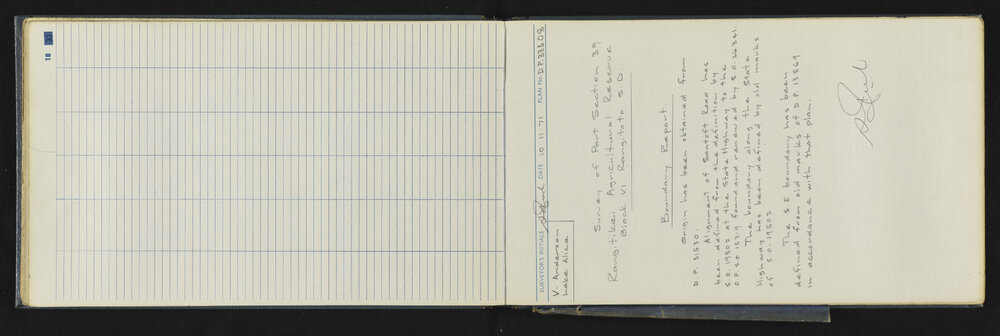 10
SURVEYOR'S INITIALS DATE 10 11 71 PLAN No. D.P. 33308
V. Anderson
Lake Alice
Survey of Part Section 39
Rangitikei Agricultural Reserve
Block VI Rangitoto S.D.
Boundary Report
Origin has been obtained from
D.P. 31530.
Alignment of Santoft Road has
been defined from the definition by
S.O. 19502 at the State Highway to the
O.P. S.O. 15319 found and renewed by S.O. 26341.
The boundary along the State
Highway has been defined by old marks
of S.O. 19502
The S E boundary has been
defined from old marks of D.P. 13569
in accordance with that plan.